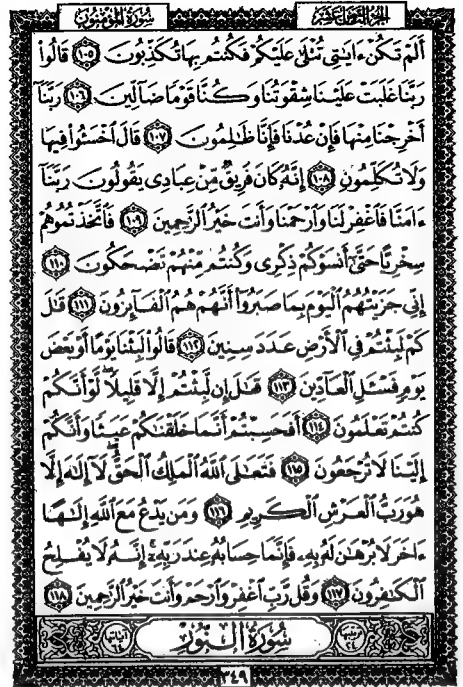 الجزء الثامن عشر سورة المؤمنون
أَلَمْ تَكُنْ ءَايَٰتِى تُتْلَىٰ عَلَيْكُمْ فَكُنتُم بِهَا تُكَذِّبُونَ ١٠٥ قَالُوا۟
رَبَّنَا غَلَبَتْ عَلَيْنَا شِقْوَتُنَا وَكُنَّا قَوْمًا ضَآلِّينَ ١٠٦ رَبَّنَآ
أَخْرِجْنَا مِنْهَا فَإِنْ عُدْنَا فَإِنَّا ظَٰلِمُونَ ١٠٧ قَالَ ٱخْسَـُٔوا۟ فِيهَا
وَلَا تُكَلِّمُونِ ١٠٨ إِنَّهُۥ كَانَ فَرِيقٌ مِّنْ عِبَادِى يَقُولُونَ رَبَّنَآ
ءَامَنَّا فَٱغْفِرْ لَنَا وَٱرْحَمْنَا وَأَنتَ خَيْرُ ٱلرَّٰحِمِينَ ١٠٩ فَٱتَّخَذْتُمُوهُمْ
سِخْرِيًّا حَتَّىٰٓ أَنسَوْكُمْ ذِكْرِى وَكُنتُم مِّنْهُمْ تَضْحَكُونَ ١١٠
إِنِّى جَزَيْتُهُمُ ٱلْيَوْمَ بِمَا صَبَرُوٓا۟ أَنَّهُمْ هُمُ ٱلْفَآئِزُونَ ١١١ قَٰلَ
كَمْ لَبِثْتُمْ فِى ٱلْأَرْضِ عَدَدَ سِنِينَ ١١٢ قَالُوا۟ لَبِثْنَا يَوْمًا أَوْ بَعْضَ
يَوْمٍ فَسْـَٔلِ ٱلْعَآدِّينَ ١١٣ قَٰلَ إِن لَّبِثْتُمْ إِلَّا قَلِيلًا ۖ لَّوْ أَنَّكُمْ
كُنتُمْ تَعْلَمُونَ ١١٤ أَفَحَسِبْتُمْ أَنَّمَا خَلَقْنَٰكُمْ عَبَثًا وَأَنَّكُمْ
إِلَيْنَا لَا تُرْجَعُونَ ١١٥ فَتَعَٰلَى ٱللَّهُ ٱلْمَلِكُ ٱلْحَقُّ ۖ لَآ إِلَٰهَ إِلَّا
هُوَ رَبُّ ٱلْعَرْشِ ٱلْكَرِيمِ ١١٦ وَمَن يَدْعُ مَعَ ٱللَّهِ إِلَٰهًا
ءَاخَرَ لَا بُرْهَٰنَ لَهُۥ بِهِۦ فَإِنَّمَا حِسَابُهُۥ عِندَ رَبِّهِۦٓ ۚ إِنَّهُۥ لَا يُفْلِحُ
ٱلْكَٰفِرُونَ ١١٧ وَقُل رَّبِّ ٱغْفِرْ وَٱرْحَمْ وَأَنتَ خَيْرُ ٱلرَّٰحِمِينَ ١١٨
سُورَةُ النُّورِ آياتها ٦٤
٣٤٩